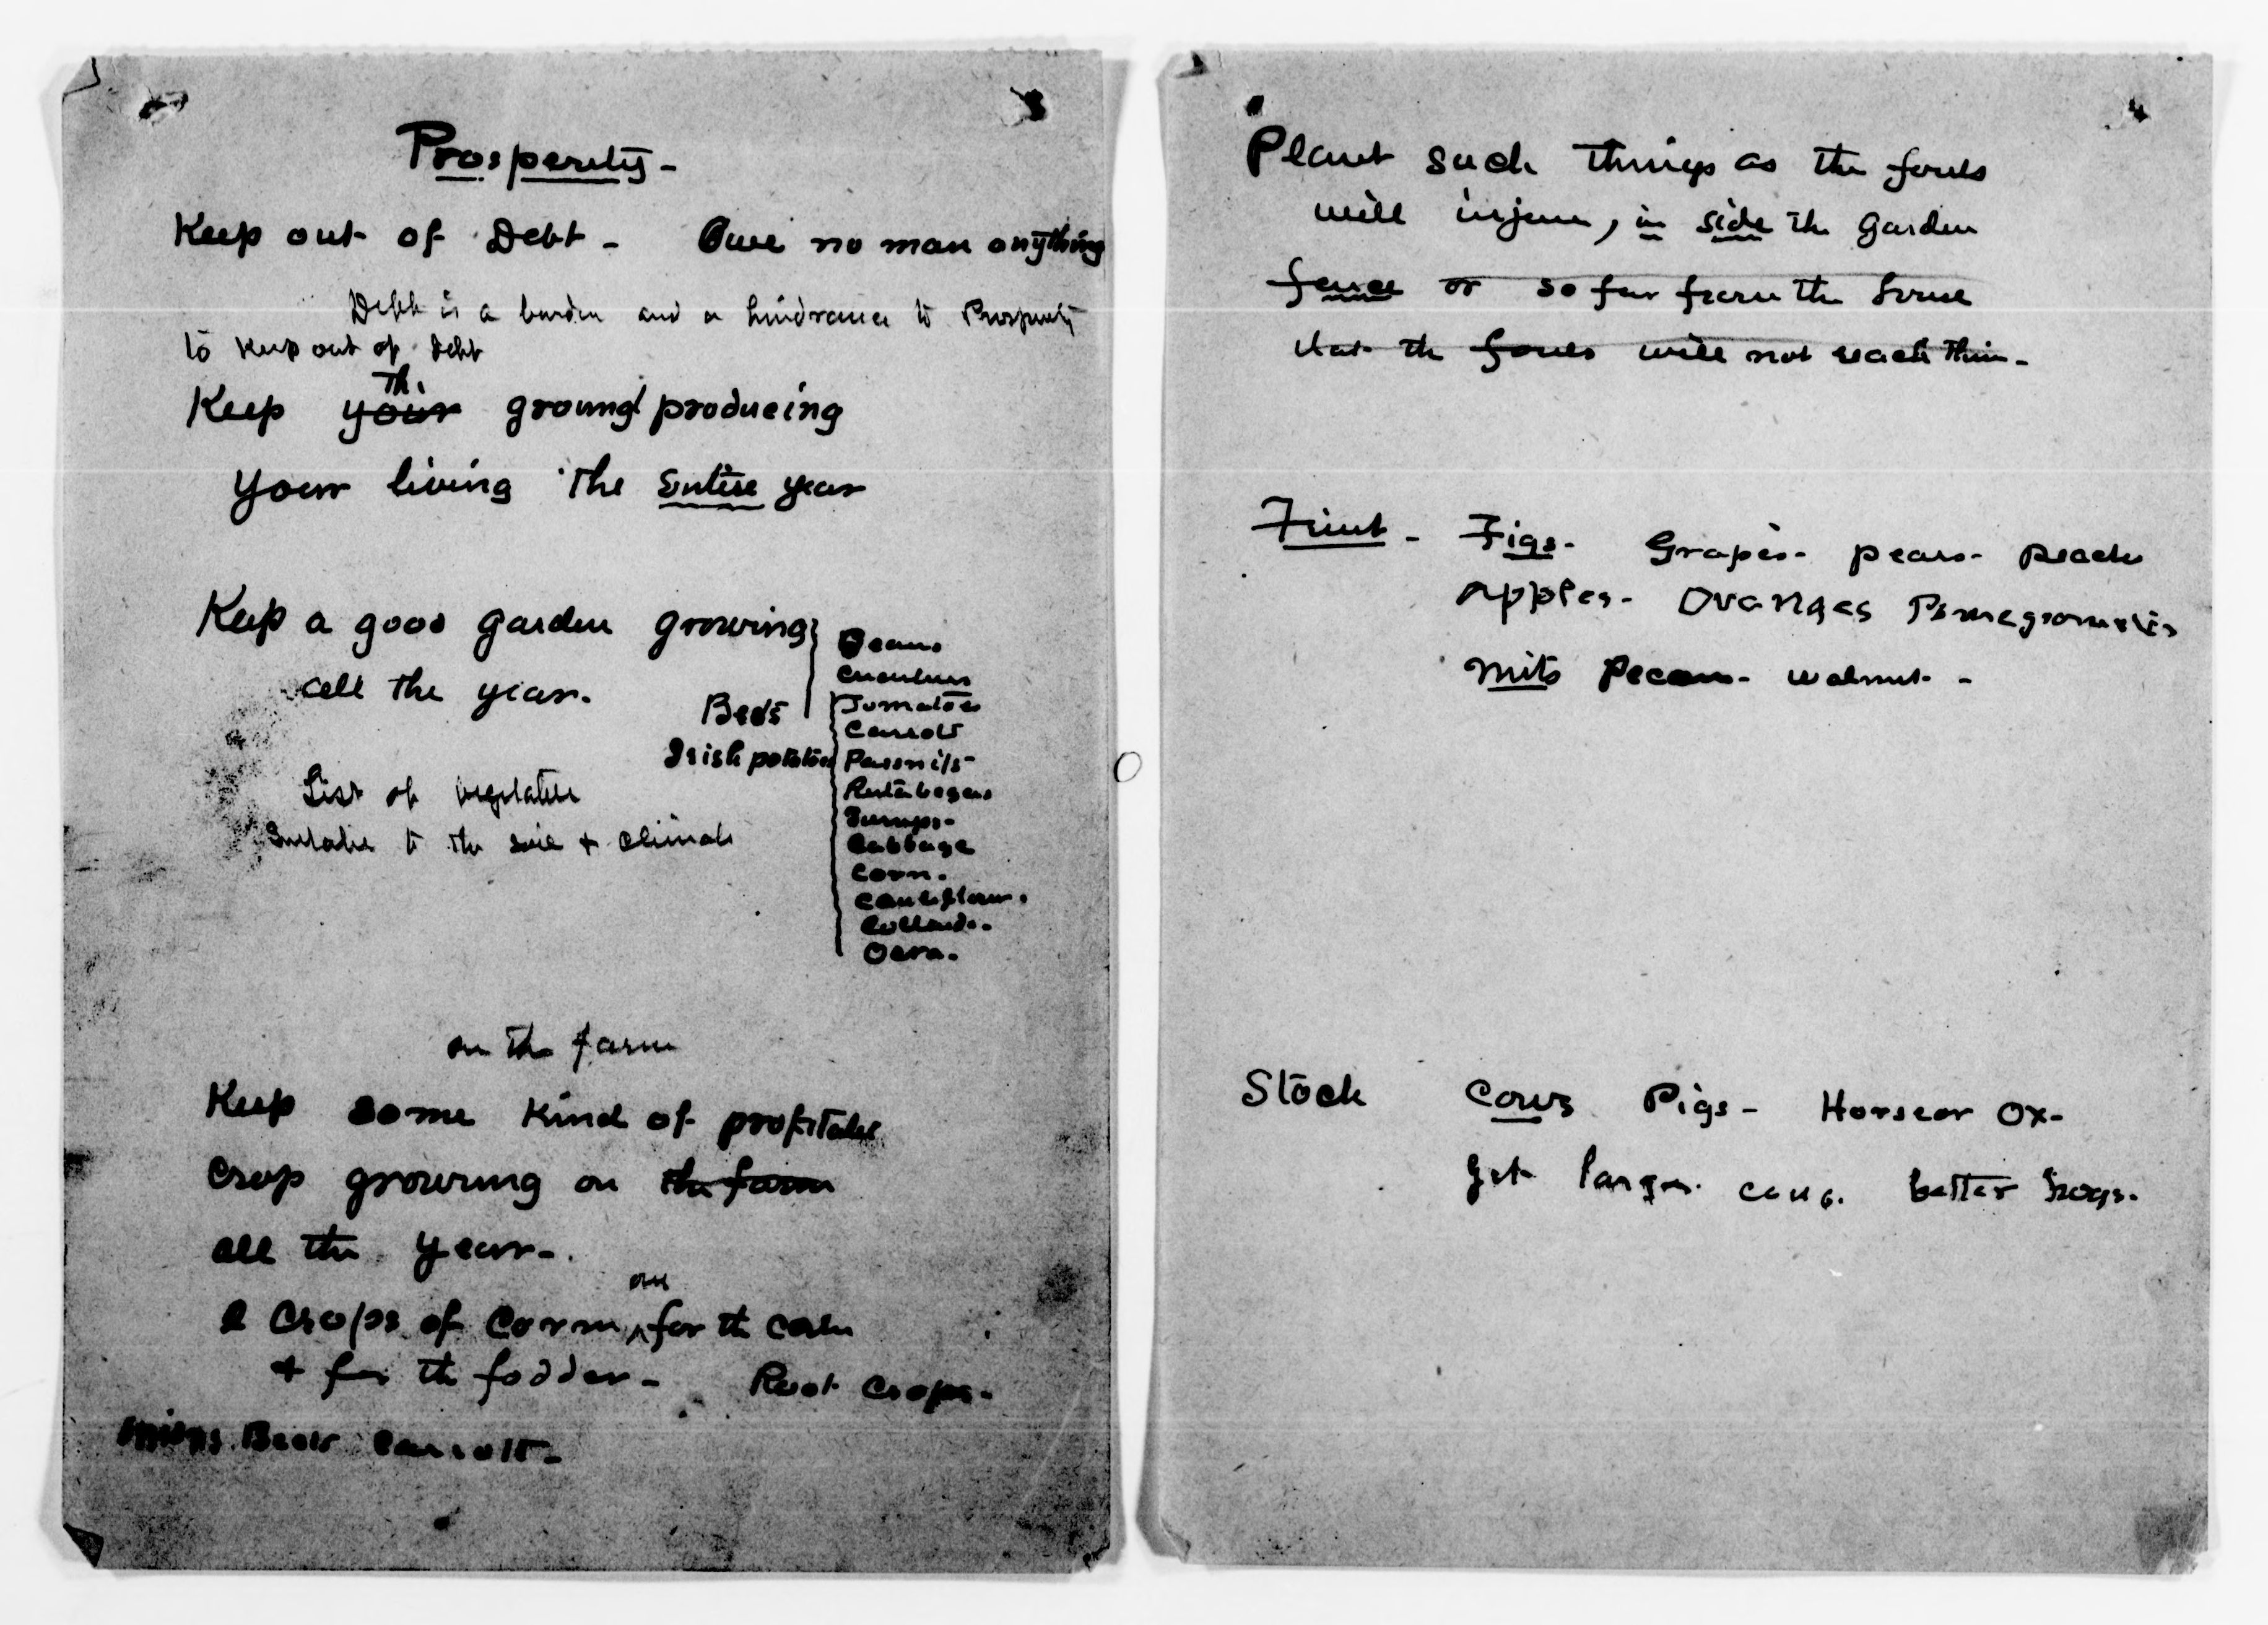 3
Prosperity-
Keep out of Debt - Owe no man anything
Debt is a burden and a hindrance to Prosperity
to keep out of debt
The
Keep your ground producing
your living the entire year
Keep a good garden growing
all the year.
Beets
Irish potatoes
Beans
Cucumbers
Tomatoes
Carrots
Parsnips
Rutabegas
Turnips-
Cabbage
Corn.
Cauliflower.
Collards.
Ocra.
List of vegetables
Suitable to the soil + climate
on the farm
Keep some kind of profitable
crop growing on the farm
all the year-.
one
2 Crops of Corn for the corn
+ for the fodder- Root crops-
Beets Carrotts-
4
Plant such things as the fowls
will injure, in side the garden
fence or so far from the house
that the fowls will not reach them-
Fruit - Figs- Grapes- pears- peach
Apples- Oranges Pomegranates
nuts Pecan- walnut -
Stock Cows Pigs- Horse or Ox-
Get larger cows. better hogs-